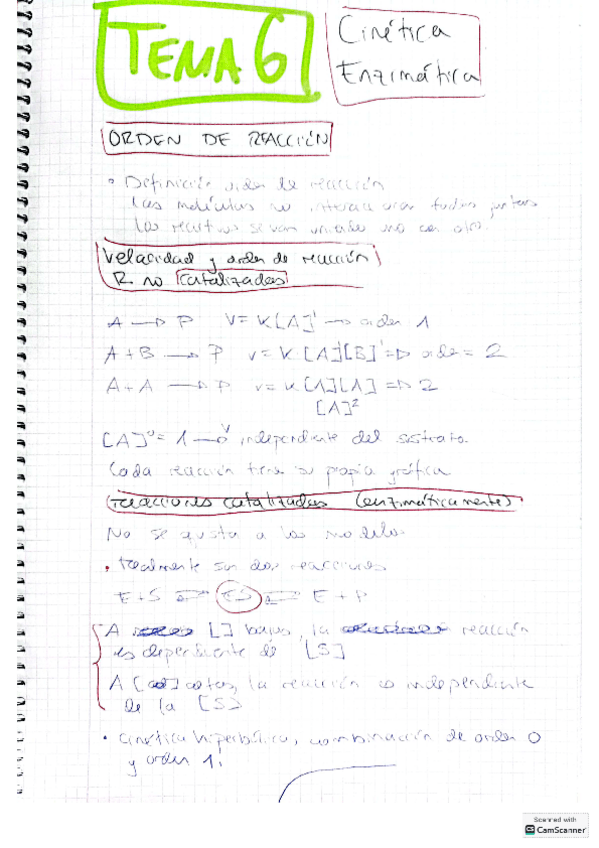 TEMA 6
Cinética
Enzimática
ORDEN DE REACCIÓN
• Definición orden de reacción
Las moléculas no interaccionan todas juntas
los reactivos se van uniendo uno con otro.
Velocidad y orden de reacción
R no catalizadas
A → P V = K[A]¹ → orden 1
A + B → P v = K [A]¹[B]¹ ⇒ orden = 2
A + A → P v = K [A][A] ⇒ 2
[A]²
[A]⁰ = 1 → v independiente del sustrato.
Cada reacción tiene su propia gráfica
reacciones catalizadas (enzimáticamente)
No se ajusta a los modelos
• Realmente son dos reacciones
E + S ⇌ ES ⇌ E + P
A [ ] bajas, la reacción
es dependiente de [S]
A [ ] altas, la reacción es independiente
de la [S]
• Cinética hiperbólica, combinación de orden 0
y orden 1:
Scanned with
CS CamScanner